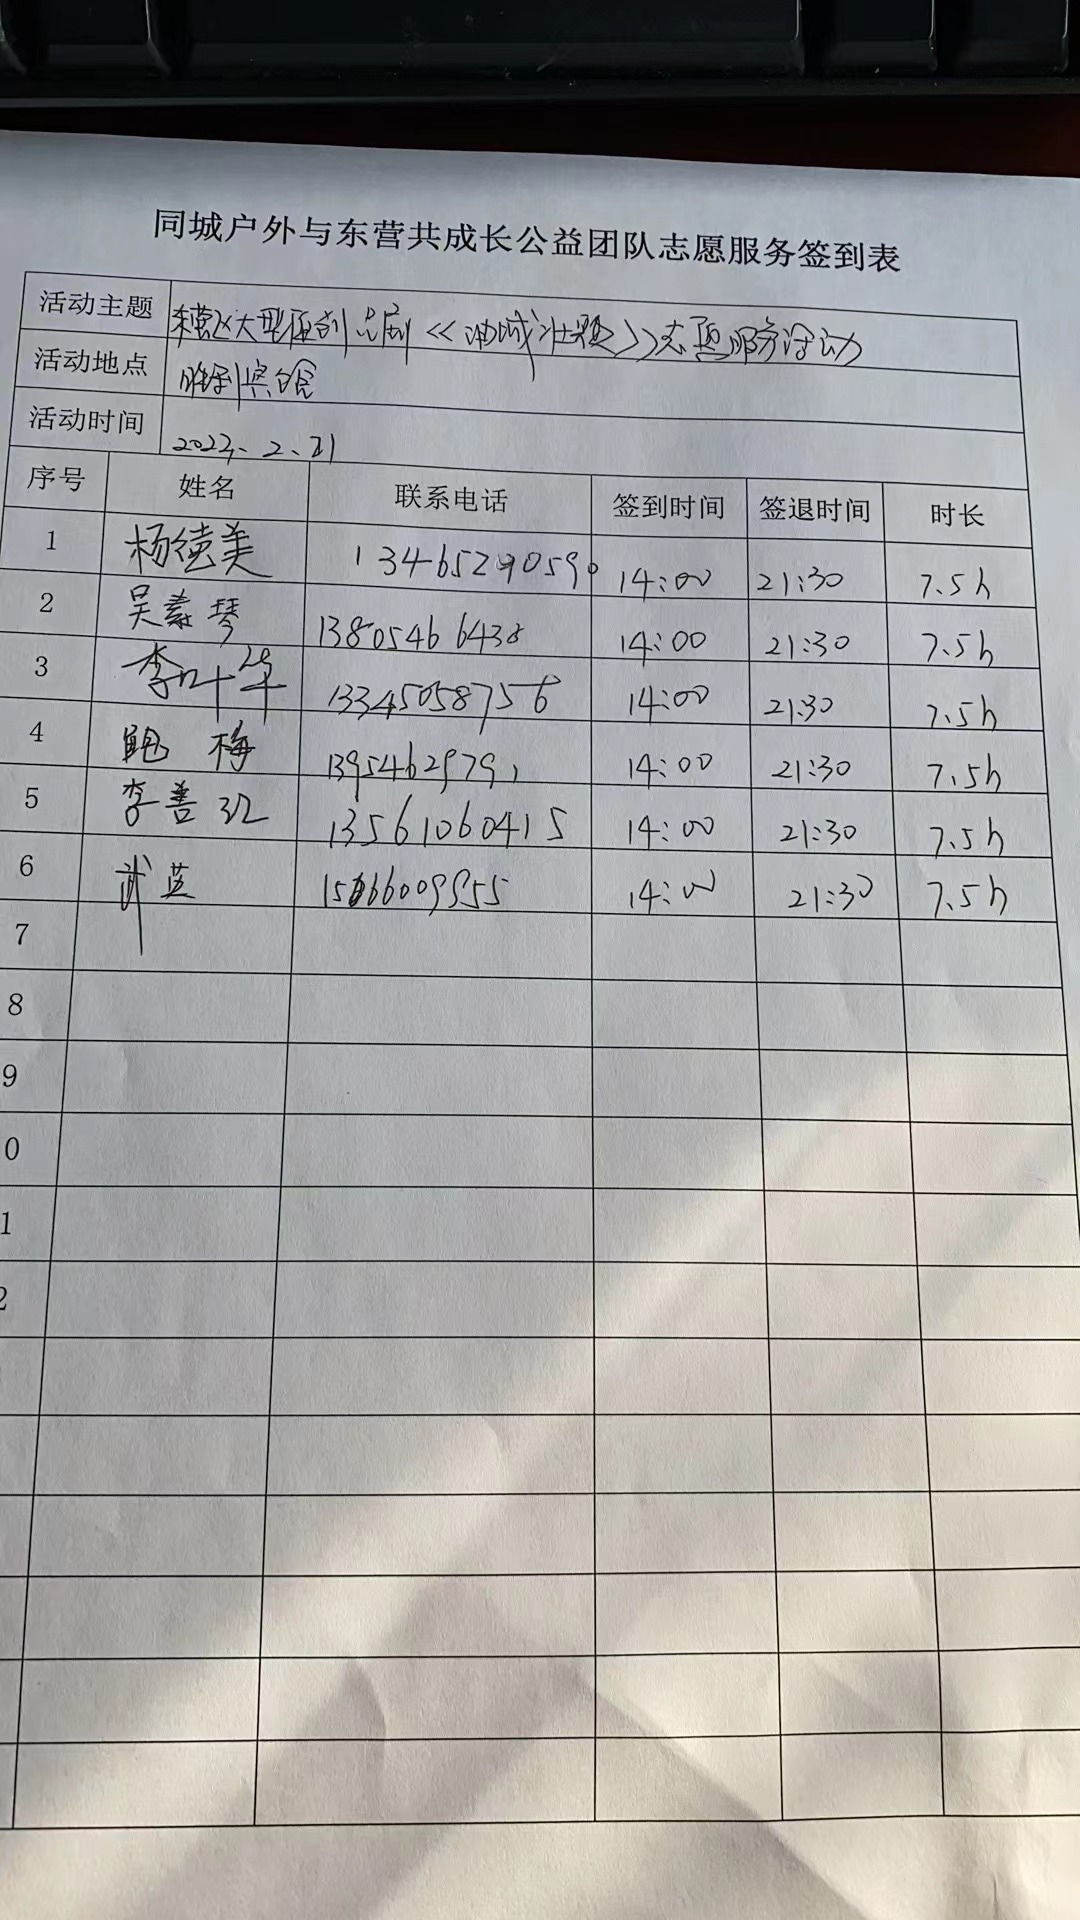 同城户外与东营共成长公益团队志愿服务签到表
活动主题 东营区大型原创吕剧《油城壮歌》志愿服务活动
活动地点 胜利宾馆
活动时间 2023.2.21
序号 姓名 联系电话 签到时间 签退时间 时长
1 杨德美 13465290590 14:00 21:30 7.5h
2 吴素琴 13805466438 14:00 21:30 7.5h
3 李叶华 13345058756 14:00 21:30 7.5h
4 鲍梅 13954629791 14:00 21:30 7.5h
5 李善 13561060415 14:00 21:30 7.5h
6 武芸 14:00 21:30 7.5h
7
8
9
0
1
2